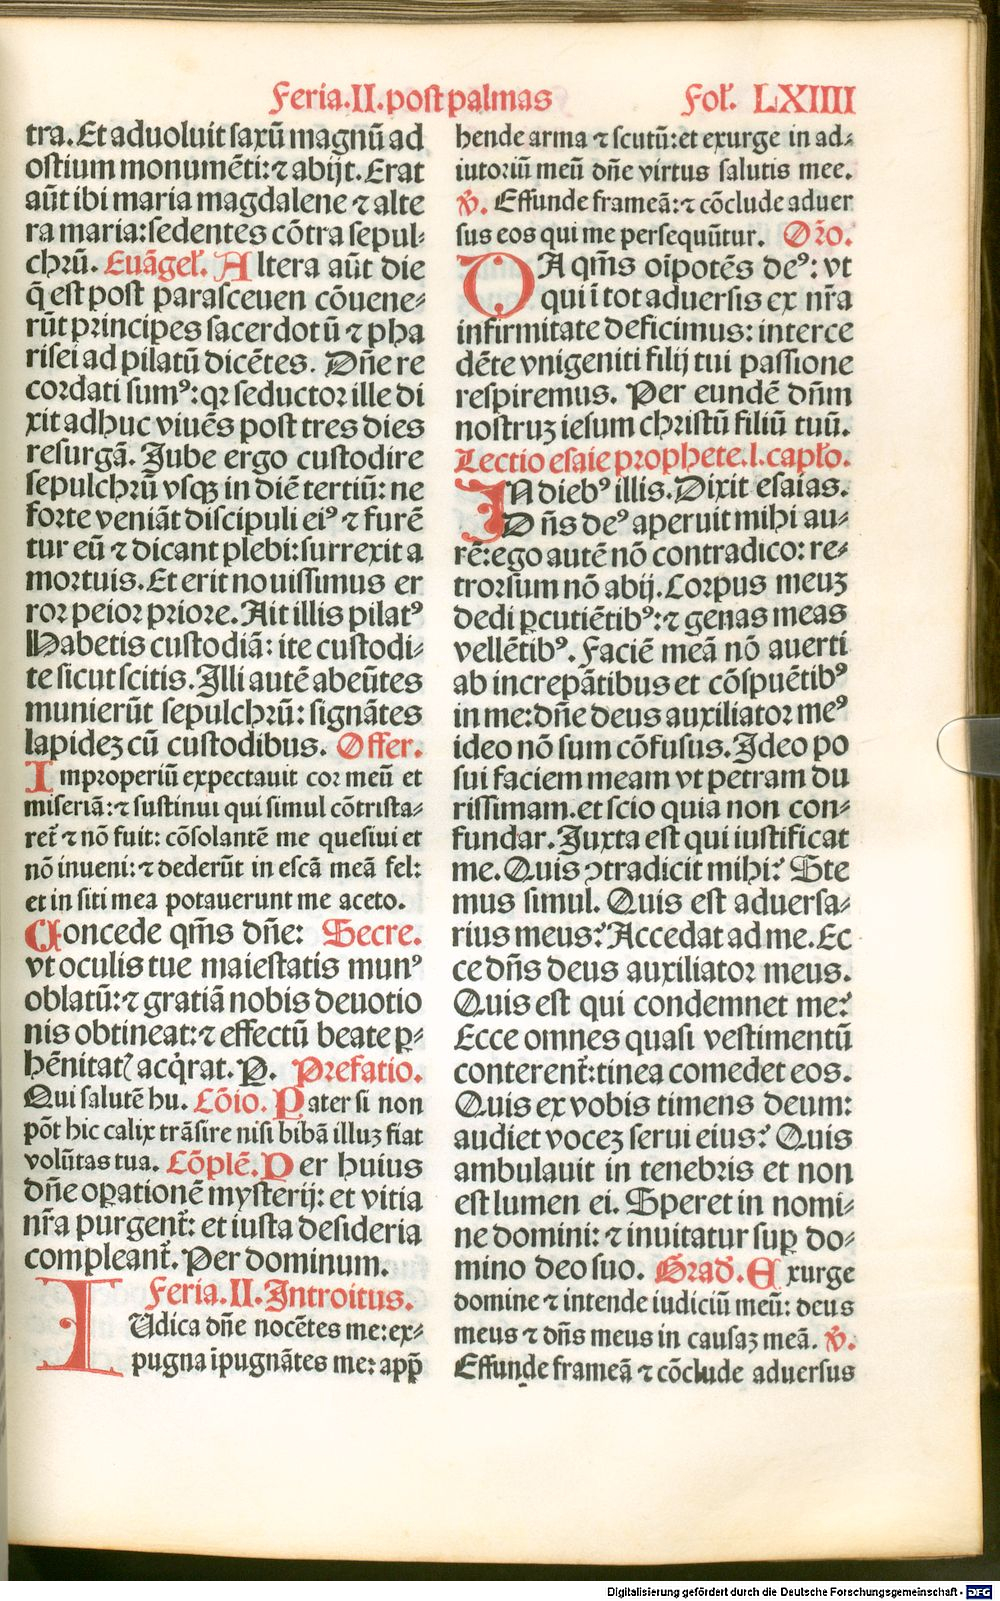 Feria.II.post palmas Fol'. LXIIII
tra. Et aduoluit saxũ magnũ ad
ostium monumẽti: ⁊ abijt. Erat
aũt ibi maria magdalene ⁊ alte
ra maria: sedentes cõtra sepul⸗
chrũ. Euãgel'. Altera aũt die
q̃ est post parasceuen cõuene⸗
rũt principes sacerdotũ ⁊ pha
risei ad pilatũ dicẽtes. Dñe re
cordati sumꝰ: qꝛ seductor ille di
xit adhuc viuẽs post tres dies
resurgã. Jube ergo custodire
sepulchrũ vsqꝫ in diẽ tertiũ: ne
forte veniãt discipuli eiꝰ ⁊ furẽ
tur eũ ⁊ dicant plebi: surrexit a
mortuis. Et erit nouissimus er
ror peior priore. Ait illis pilatꝰ
Habetis custodiã: ite custodi⸗
te sicut scitis. Illi autẽ abeũtes
munierũt sepulchrũ: signãtes
lapideꝫ cũ custodibus. Offer.
Improperiũ expectauit cor meũ et
miseriã: ⁊ sustinui qui simul cõtrista⸗
ret̃ ⁊ nõ fuit: cõsolantẽ me quesiui et
nõ inueni: ⁊ dederũt in escã meã fel:
et in siti mea potauerunt me aceto.
Concede qm̃s dñe: Secre.
vt oculis tue maiestatis munꝰ
oblatũ: ⁊ gratiã nobis deuotio
nis obtineat: ⁊ effectũ beate ꝑ⸗
hẽnitatꝭ acq̇rat. P. Prefatio.
Qui salutẽ hu. Cõio. Pater si non
põt hic calix trãsire nisi bibã illuꝫ fiat
volũtas tua. Cõplẽ. Per huius
dñe oꝑationẽ mysterij: et vitia
nr̃a purgent̃: et iusta desideria
compleant̃. Per dominum.
Feria.II.Introitus.
IUdica dñe nocẽtes me: ex⸗
pugna ĩpugnãtes me: apꝑ
hende arma ⁊ scutũ: et exurge in ad⸗
iutoriũ meũ dñe virtus salutis mee.
℣. Effunde frameã: ⁊ cõclude aduer
sus eos qui me persequũtur. Oro.
DA qm̃s oĩpotẽs deꝰ: vt
qui ĩ tot aduersis ex nr̃a
infirmitate deficimus: interce
dẽte vnigeniti filij tui passione
respiremus. Per eundẽ dñm
nostruꝫ iesum christũ filiũ tuũ.
Lectio esaie prophete.l.capl'o.
IN diebꝰ illis. Dixit esaias.
Dñs deꝰ aperuit mihi au⸗
rẽ: ego autẽ nõ contradico: re⸗
trorsum nõ abij. Corpus meuꝫ
dedi ꝑcutiẽtibꝰ: ⁊ genas meas
vellẽtibꝰ. Faciẽ meã nõ auerti
ab increpãtibus et cõspuẽtibꝰ
in me: dñe deus auxiliator meꝰ
ideo nõ sum cõfusus. Ideo po
sui faciem meam vt petram du
rissimam. et scio quia non con⸗
fundar. Juxta est qui iustificat
me. Quis ↄtradicit mihi? Ste
mus simul. Quis est aduersa⸗
rius meus? Accedat ad me. Ec
ce dñs deus auxiliator meus.
Quis est qui condemnet me?
Ecce omnes quasi vestimentũ
conterent̃: tinea comedet eos.
Quis ex vobis timens deum:
audiet voceꝫ serui eius? Quis
ambulauit in tenebris et non
est lumen ei. Speret in nomi⸗
ne domini: ⁊ inuitatur suꝑ do⸗
mino deo suo. Grad'. Exurge
domine ⁊ intende iudiciũ meũ: deus
meus ⁊ dñs meus in causaꝫ meã. ℣.
Effunde frameã ⁊ cõclude aduersus
Digitalisierung gefördert durch die Deutsche Forschungsgemeinschaft - DFG